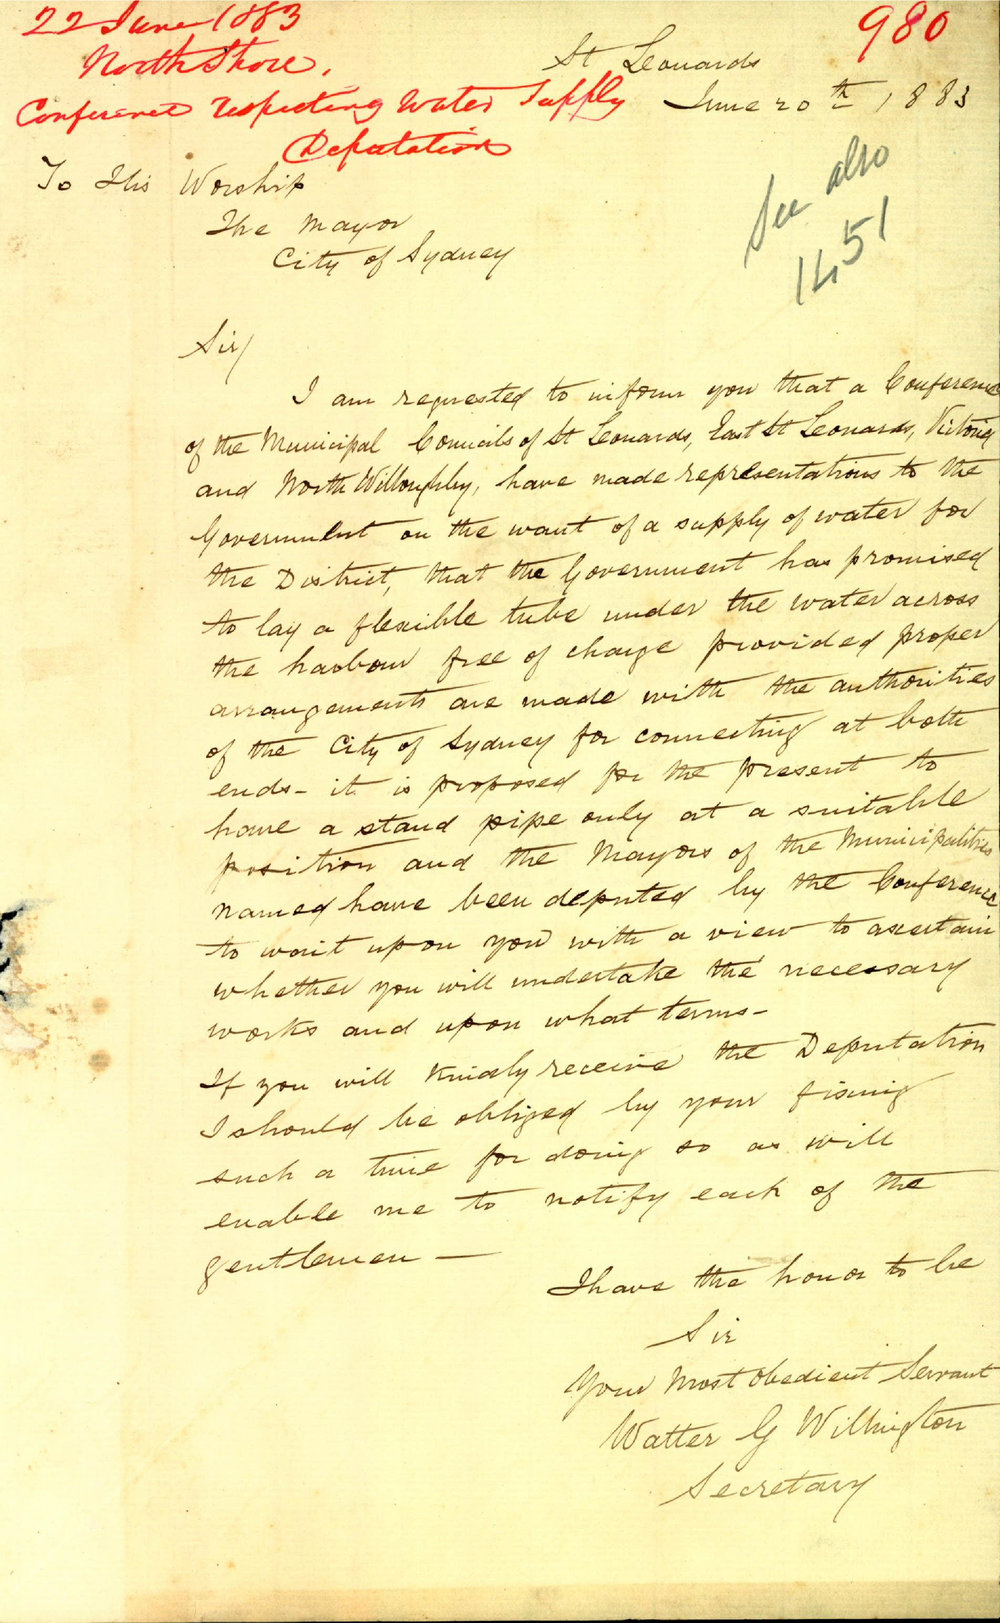 22 June 1883
980
North Shore.
Conference respecting Water Supply
Deputation
St Leonards
June 20th 1883
See also
1451
To His Worship
The Mayor
City of Sydney
Sir/
I am requested to inform you that a Conference
of the Municipal Councils of St Leonards, East St Leonards, Victoria
and North Willoughby, have made representations to the
Government on the want of a supply of water for
the District, that the Government has promised
to lay a flexible tube under the water across
the harbour free of charge provided proper
arrangements are made with the authorities
of the City of Sydney for connecting at both
ends - it is proposed for the present to
have a stand pipe only at a suitable
position and the Mayors of the Municipalities
named have been deputed by the Conference
to wait upon you with a view to ascertain
whether you will undertake the necessary
works and upon what terms -
If you will kindly receive the Deputation
I should be obliged by your fixing
such a time for doing so as will
enable me to notify each of the
gentlemen —
I have the honor to be
Sir
Your Most Obedient Servant
Walter G Willington
Secretary